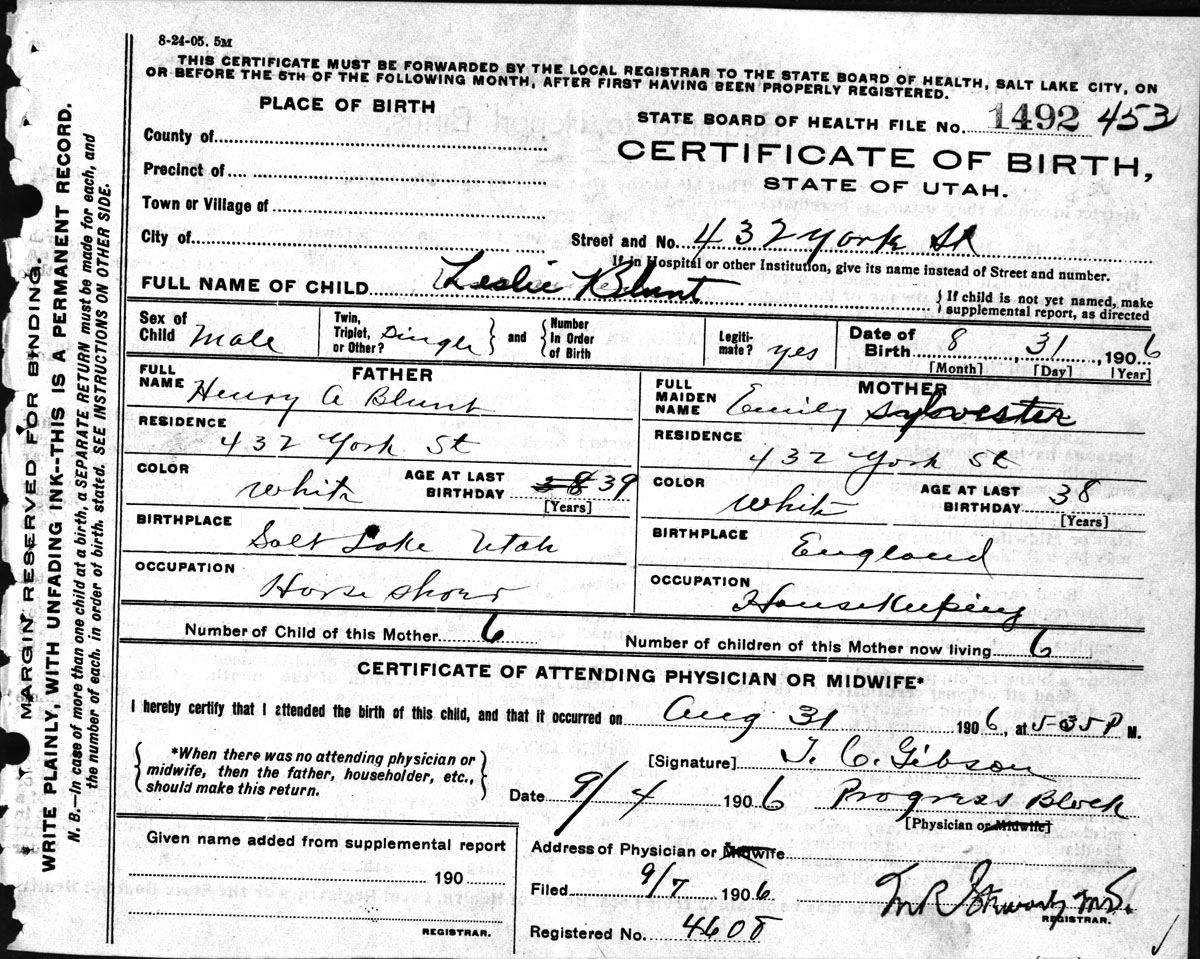 8-24-05. 5M
THIS CERTIFICATE MUST BE FORWARDED BY THE LOCAL REGISTRAR TO THE STATE BOARD OF HEALTH, SALT LAKE CITY, ON
OR BEFORE THE 5TH OF THE FOLLOWING MONTH, AFTER FIRST HAVING BEEN PROPERLY REGISTERED.
PLACE OF BIRTH
STATE BOARD OF HEALTH FILE No. 1492 453
CERTIFICATE OF BIRTH,
STATE OF UTAH.
County of
Precinct of
Town or Village of
City of
Street and No. 432 York St
If in Hospital or other Institution, give its name instead of Street and number.
FULL NAME OF CHILD Leslie Blunt
If child is not yet named, make
supplemental report, as directed
Sex of Child Male
Twin, Triplet, or Other? Single and Number In Order of Birth
Legitimate? yes
Date of Birth 8, 31, 1906
[Month] [Day] [Year]
FATHER
FULL NAME Henry A Blunt
RESIDENCE
432 York St
COLOR White
AGE AT LAST BIRTHDAY 38 39
[Years]
BIRTHPLACE
Salt Lake Utah
OCCUPATION
Horse
MOTHER
FULL MAIDEN NAME Emily Sylvester
RESIDENCE
432 York St
COLOR White
AGE AT LAST BIRTHDAY 38
[Years]
BIRTHPLACE
England
OCCUPATION
Housekeeping
Number of Child of this Mother 6
Number of children of this Mother now living 6
CERTIFICATE OF ATTENDING PHYSICIAN OR MIDWIFE*
I hereby certify that I attended the birth of this child, and that it occurred on Aug 31 1906, at 5-35 P M.
*When there was no attending physician or
midwife, then the father, householder, etc.,
should make this return.
[Signature] T. C. Gibson
Date 9/4 1906 Progress Block
[Physician or Midwife]
Given name added from supplemental report
190
REGISTRAR.
Address of Physician or Midwife
Filed 9/7 1906
Registered No. 4608
M.D.
REGISTRAR.
MARGIN RESERVED FOR BINDING.
WRITE PLAINLY, WITH UNFADING INK--THIS IS A PERMANENT RECORD.
N. B.—In case of more than one child at a birth, a SEPARATE RETURN must be made for each, and
the number of each, in order of birth, stated. SEE INSTRUCTIONS ON OTHER SIDE.